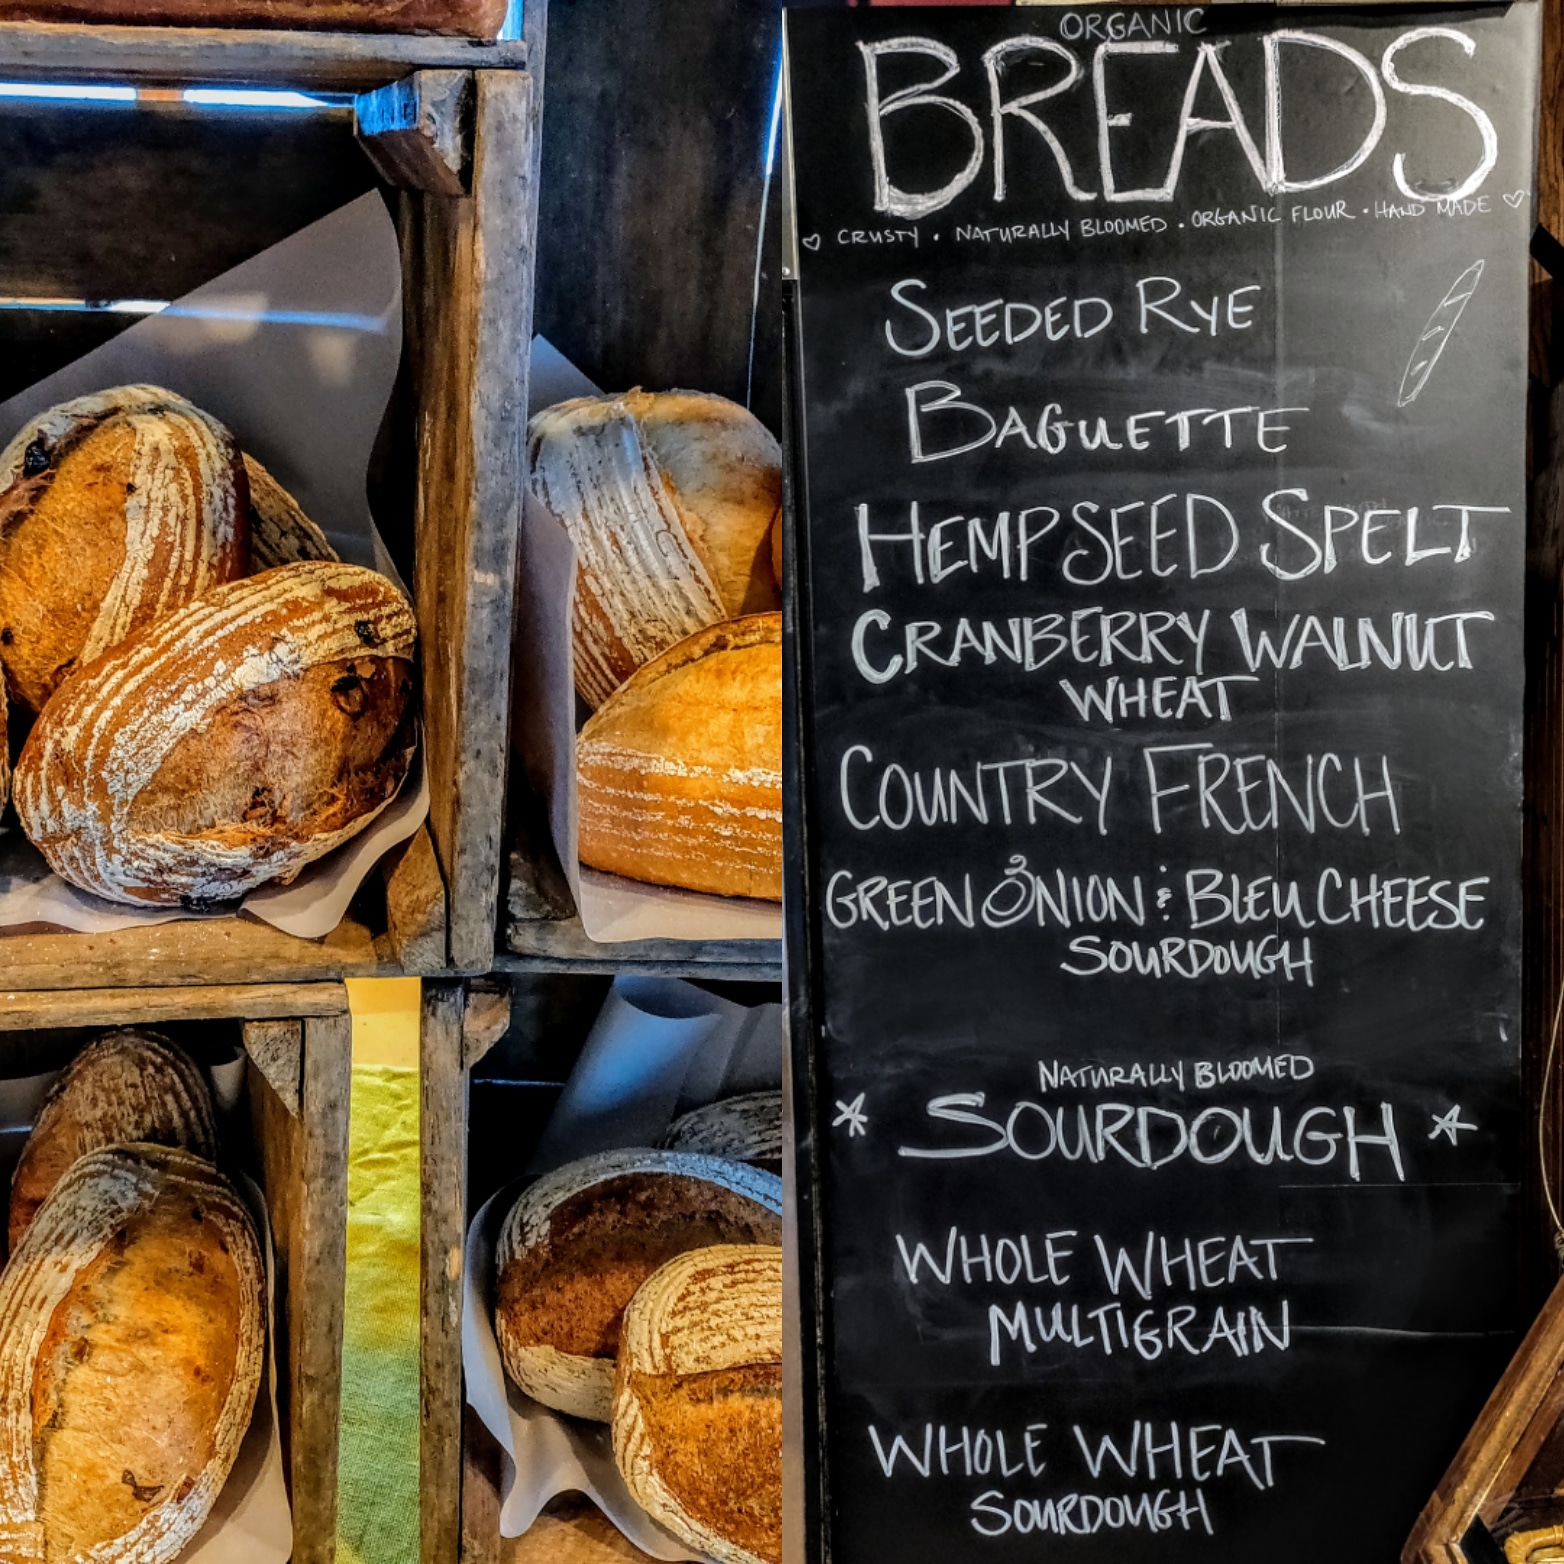 ORGANIC
BREADS
♡ CRUSTY • NATURALLY BLOOMED • ORGANIC FLOUR • HAND MADE ♡
SEEDED RYE
BAGUETTE
HEMPSEED SPELT
CRANBERRY WALNUT
WHEAT
COUNTRY FRENCH
GREEN ONION & BLEU CHEESE
SOURDOUGH
NATURALLY BLOOMED
* SOURDOUGH *
WHOLE WHEAT
MULTIGRAIN
WHOLE WHEAT
SOURDOUGH